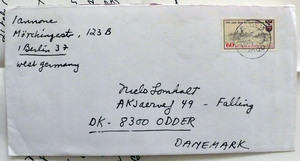 Iannone
Mörchingerstr., 123 B
1 Berlin 37
west Germany
60
Niels Lomholt
Falling
DK- 8300 ODDER
DANEMARK